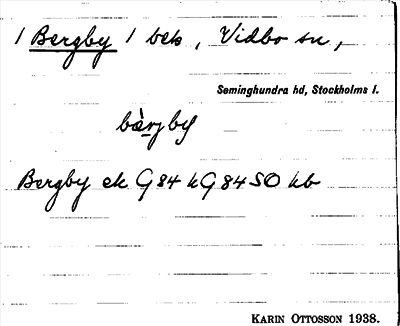 / Bergby / beb., Vidbo sn,
Seminghundra hd, Stockholms l.
bàrjby
Bergby ek G 84 kG 84 SO kb
KARIN OTTOSSON 1938.